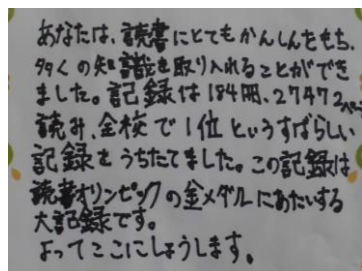 あなたは、読書にとてもかんしんをもち、
多くの知識を取り入れることができ
ました。記録は184冊、27472ページ
読み、全校で1位というすばらしい
記録をうちたてました。この記録は
読書オリンピックの金メダルにあたいする
大記録です。
よってここにしょうします。